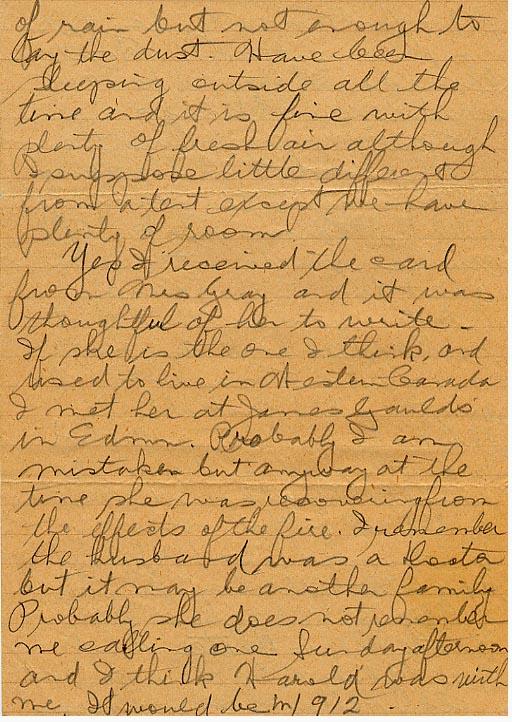 of rain but not enough to
lay the dust. Have been
sleeping outside all the
time and it is fine with
plenty of fresh air although
I suppose little different
from a tent except we have
plenty of room
Yes I received the card
from Mrs Gray and it was
thoughtful of her to write.
If she is the one I think, and
used to live in Western Canada
I met her at James Gaulds
in Edmn. Probably I am
mistaken but anyway at the
time she was recovering from
the effects of the fire. I remember
the husband was a Doctor
but it may be another family
Probably she does not remember
me calling one Sunday afternoon
and I think Harold was with
me, It would be in 1912.